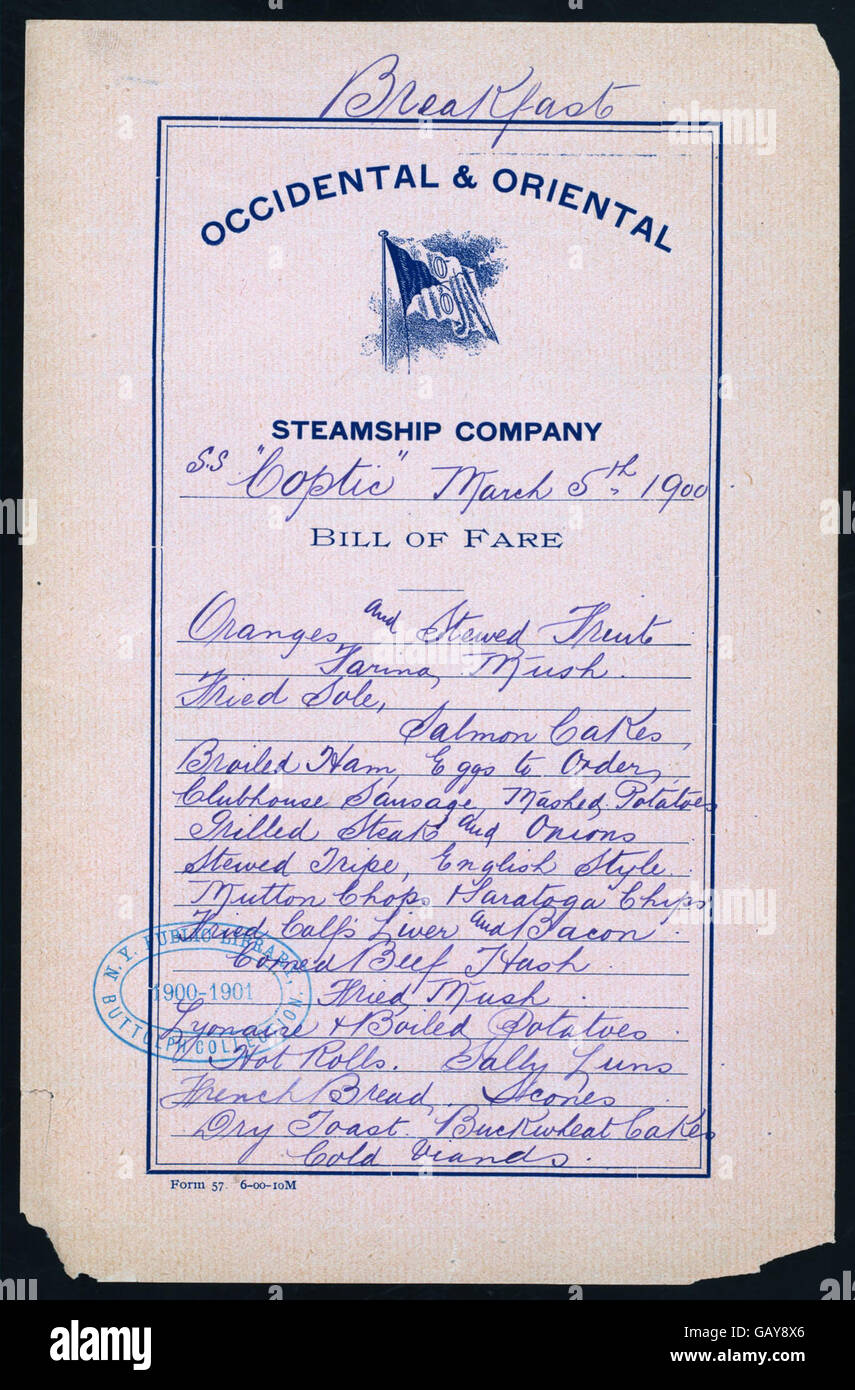 Breakfast
OCCIDENTAL & ORIENTAL
STEAMSHIP COMPANY
S.S "Coptic" March 5th 1900
BILL OF FARE
Oranges and Stewed Fruit
Farina Mush.
Fried Sole,
Salmon Cakes,
Broiled Ham, Eggs to Order,
Clubhouse Sausage, Mashed Potatoes
Grilled Steak and Onions
Stewed Tripe, English Style.
Mutton Chops & Saratoga Chips
Fried Calf's Liver and Bacon.
Corned Beef Hash.
Fried Mush.
Lyonaire & Boiled Potatoes.
Hot Rolls. Sally Luns
French Bread, Scones
Dry Toast. Buckwheat Cakes
Cold Viands.
N. Y. PUBLIC LIBRARY,
1900-1901
BUTTOLPH COLLECTION.
Form 57. 6-00-10M
alamy
GAY8X6
www.alamy.com